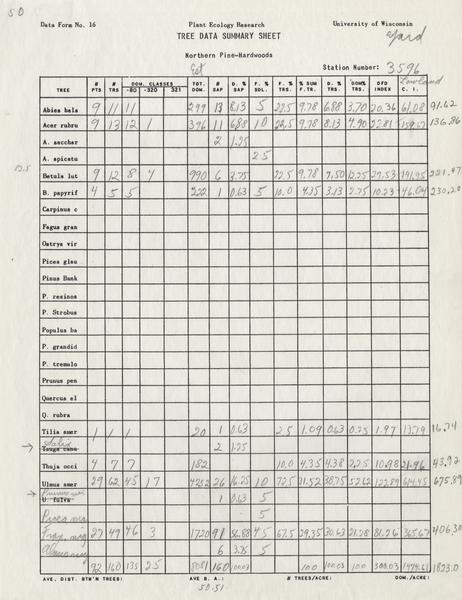 50
Data Form No. 16 Plant Ecology Research University of Wisconsin
TREE DATA SUMMARY SHEET Yard
Northern Pine-Hardwoods
Est Station Number: 3596
Lowland
TREE # PTS # TRS DOM. CLASSES -80 -320 321 TOT. DOM. # SAP D. % SAP F. % SDL F. % TRS % SUM F.TR. D. % TRS. DOM% TRS. DFD INDEX C. I.
Abies bals 9 11 11 299 13 8.13 5 22.5 9.78 6.88 3.70 20.36 61.08 91.62
Acer rubru 9 13 12 1 396 11 6.88 10 22.5 9.78 8.13 4.90 22.81 136.86
A. sacchar 2 1.25
A. spicatu 2.5
12.5 Betula lut 9 12 8 4 990 6 3.75 22.5 9.78 7.50 12.25 29.53 221.47
B. papyrif 4 5 5 222 1 0.63 5 10.0 4.35 3.13 2.75 10.23 46.04 230.20
Carpinus c
Fagus gran
Ostrya vir
Picea glau
Pinus Bank
P. resinos
P. Strobus
Populus ba
P. grandid
P. tremulo
Prunus pen
Quercus el
Q. rubra
Tilia amer 1 1 1 20 1 0.63 2.5 1.09 0.63 0.25 1.97 13.79 16.74
Salix
Tsuga cana 2 1.25
Thuja occi 4 7 7 182 10.0 4.35 4.38 2.25 10.98 21.96 43.92
Ulmus amer 29 62 45 17 4252 26 16.25 10 72.5 31.52 38.75 52.62 122.89 675.89
U. fulva 1 0.63 5
Picea ma 5
Frax. nig 27 49 46 3 1720 91 56.88 45 67.5 29.35 30.63 21.28 81.26 365.67 406.30
6 3.75 5
92 160 135 25 8081 160 100.03 100 100.03 100.0 300.03
AVE. DIST. BTW'N TREES: AVE B. A.: # TREES/ACRE: DOM./ACRE:
50.51